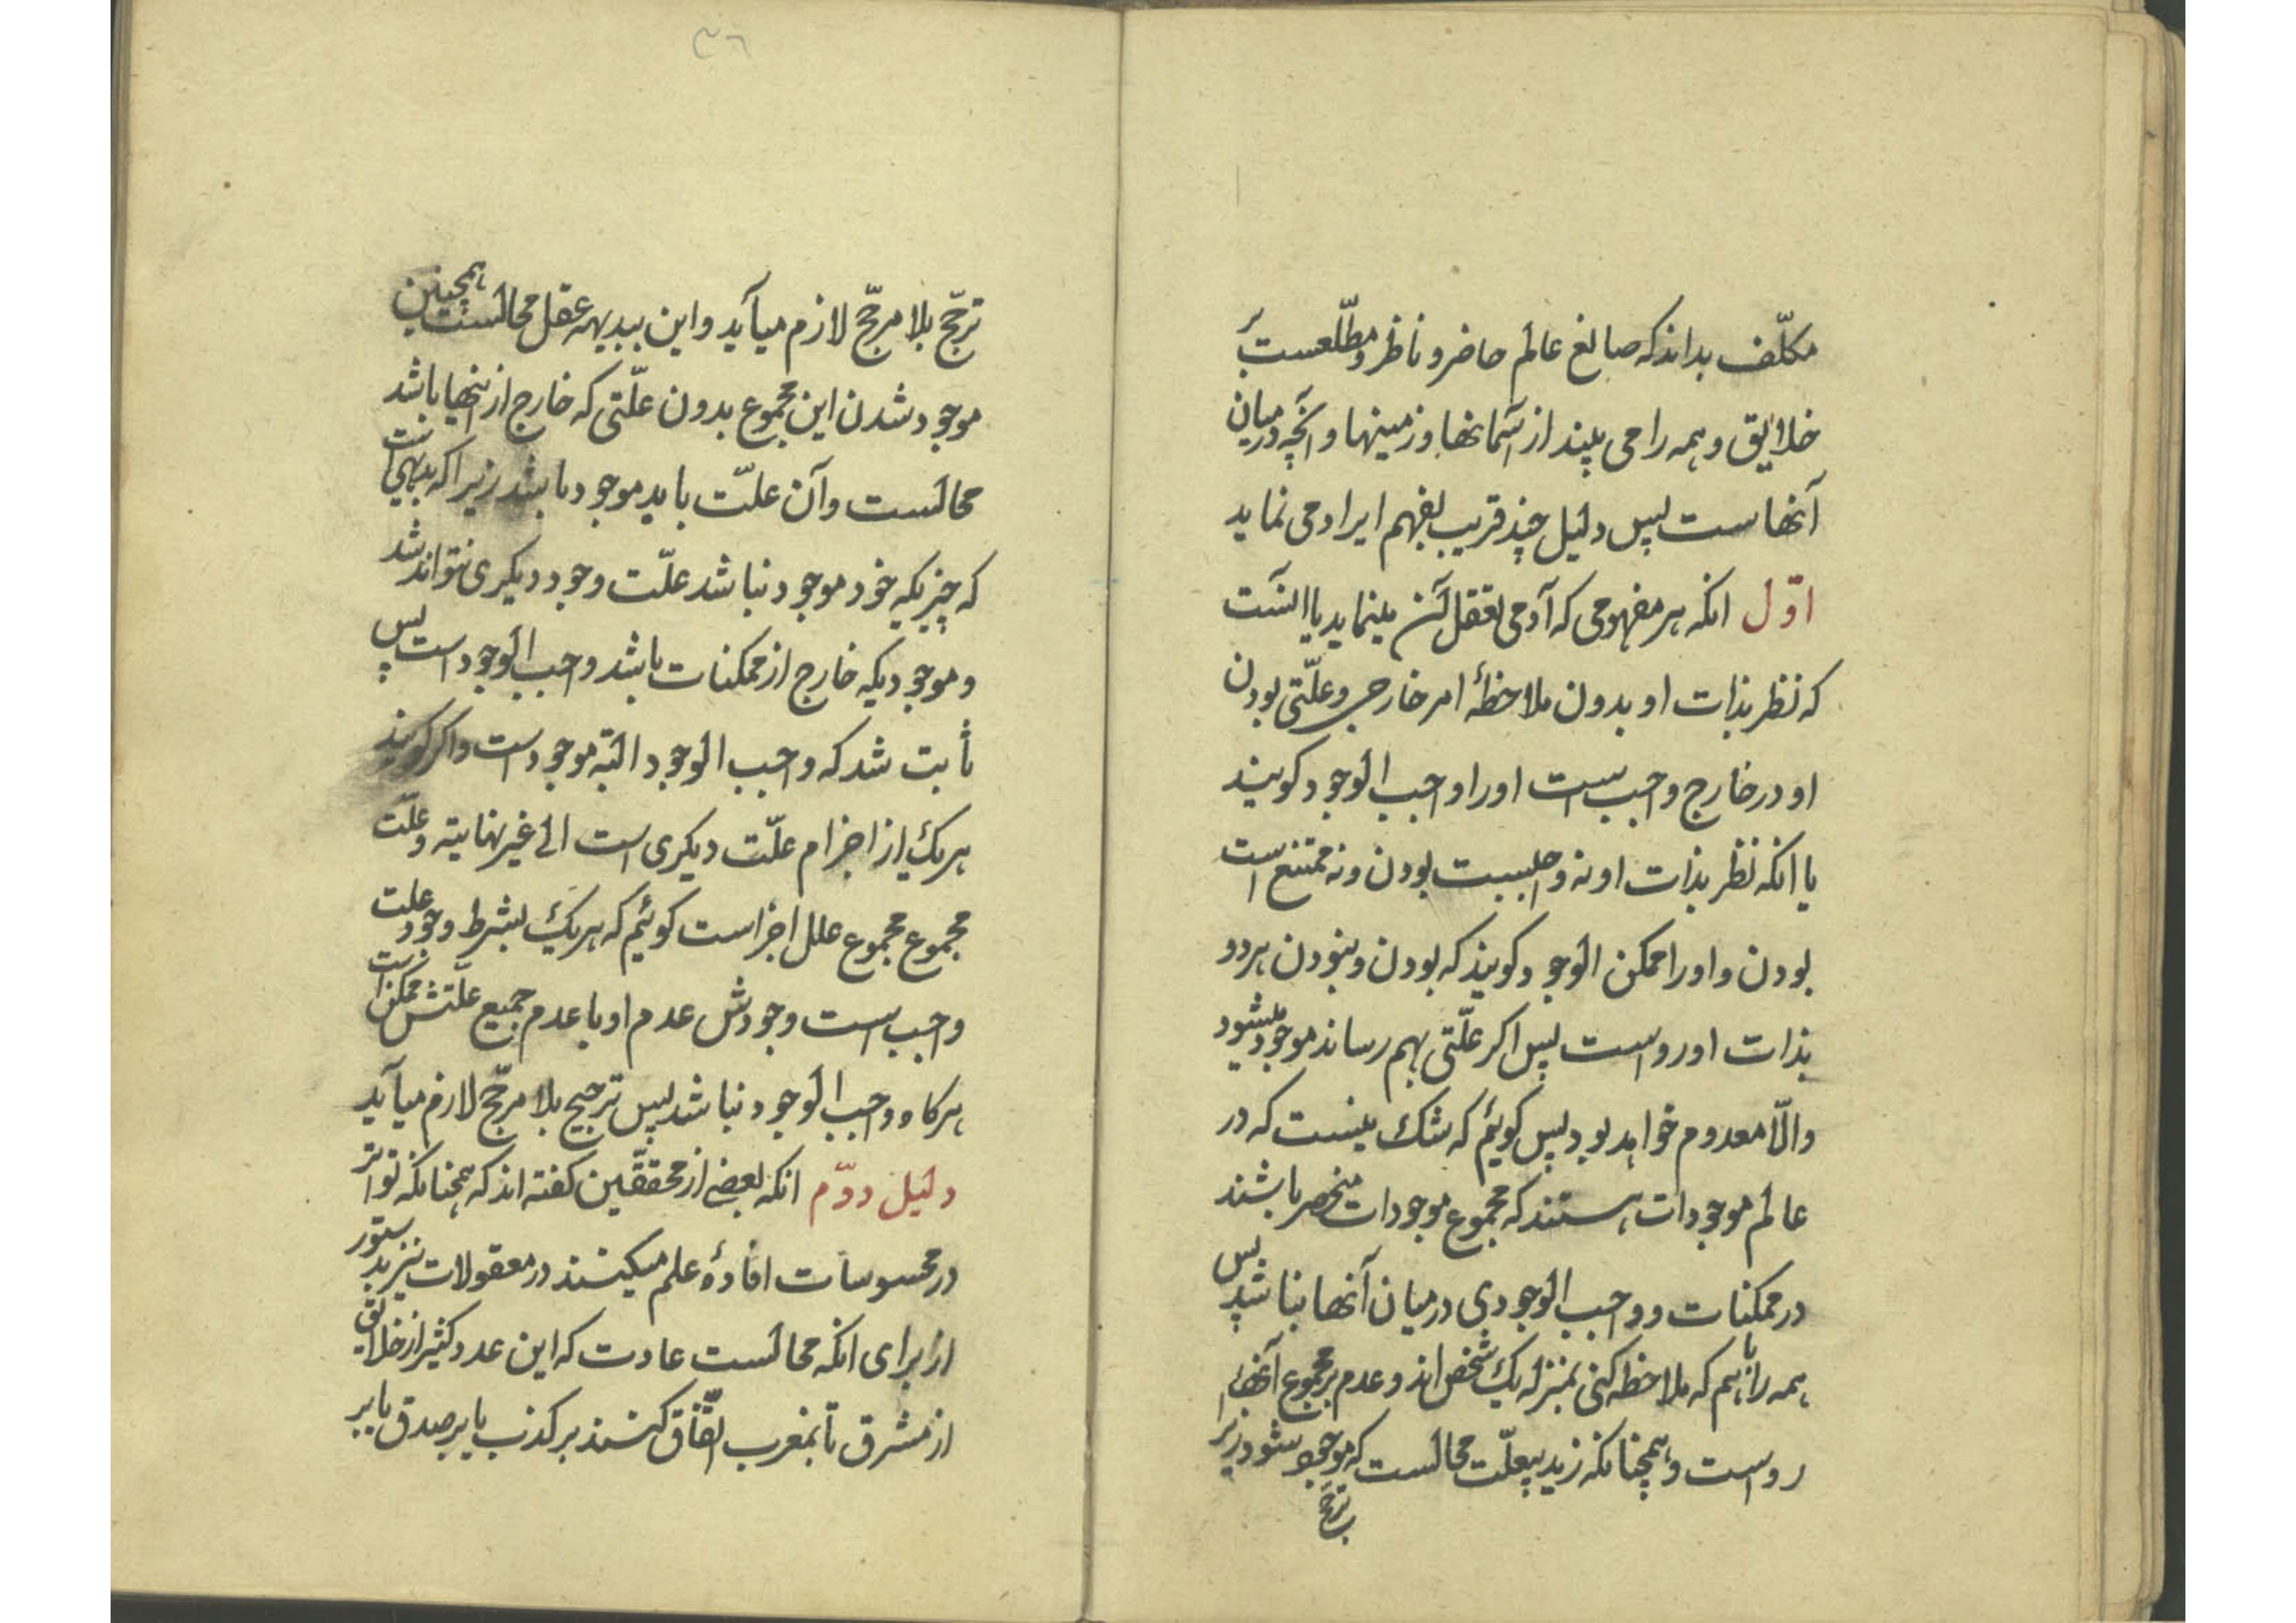 مکلّف بداند که صانع عالم حاضر و ناظر و مطّلعست بر
خلایق و همه را می بیند از آسمانها و زمینها و آنچه در میان
آنهاست پس دلیل چند قریب بفهم ایراد می نماید
اوّل انکه هر مفهومی که آدمی تعقل آن مینماید یا انست
که نظر بذات او بدون ملاحظهٔ امر خارجی و علّتی بودن
او در خارج واجب است او را واجب الوجود کویند
یا انکه نظر بذات او نه واجبست بودن و نه ممتنع است
بودن و او را ممکن الوجود کویند که بودن و نبودن هر دو
بذات او رواست پس اکر علّتی بهم رساند موجود میشود
والّا معدوم خواهد بود پس کوییم که شک نیست که در
عالم موجودات هستند که مجموع موجودات منحصر باشند
در ممکنات و واجب الوجودی در میان آنها نباشد پس
همه را باهم که ملاحظه کنی بمنزله یک شخص اند و عدم بر مجموع آنها
رواست و همچنانکه زید بیعلّت محالست که موجود شود زیرا
ترجّح
٣٦
ترجّح بلا مرجّح لازم میآید و این ببدیهه عقل محالست همچنین
موجود شدن این مجموع بدون علّتی که خارج از اینها باشد
محالست و آن علّت باید موجود باشد زیرا که بدیهی است
که چیزیکه خود موجود نباشد علّت وجود دیکری نتواند شد
و موجودیکه خارج از ممکنات باشد واجب الوجود است پس
ثابت شد که واجب الوجود البته موجود است و اکر کویند
هر یک از اجزا علّت دیکری است الی غیر نهایته و علّت
مجموع مجموع علل اجزاست کوئیم که هر یک بشرط وجود علت
واجب است وجودش عدم او با عدم جمیع علّتش ممکن است
هرکاه واجب الوجود نباشد پس ترجیح بلا مرجّح لازم میآید
دلیل دوّم انکه بعضی از محققّین کفته اند که همچنانکه تواتر
در محسوسات افادهٔ علم میکنند در معقولات نیز بدستور
از برای انکه محالست عادت که این عدد کثیر از خلایق
از مشرق تا بمغرب اتّفاق کنند بر کذب یا بر صدق یا بر